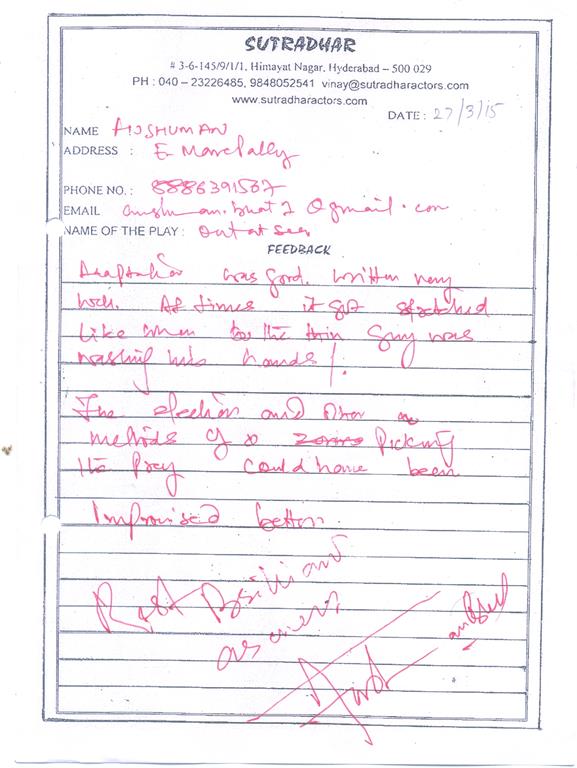 SUTRADHAR
# 3-6-145/9/1/1, Himayat Nagar, Hyderabad – 500 029
PH : 040 – 23226485, 9848052541 vinay@sutradharactors.com
www.sutradharactors.com
DATE : 27/3/15
NAME ANSHUMAN
ADDRESS : E. Maredpally
PHONE NO. : 8886391567
EMAIL anshuman.bhat2@gmail.com
NAME OF THE PLAY : Out at sea
FEEDBACK
Adaptation was good. Written very
well. At times it got stretched
like when the thin guy was
washing his hands!
The election and other
methods of picking
the Prey could have been
improvised better.
Rest Brilliant
as ever